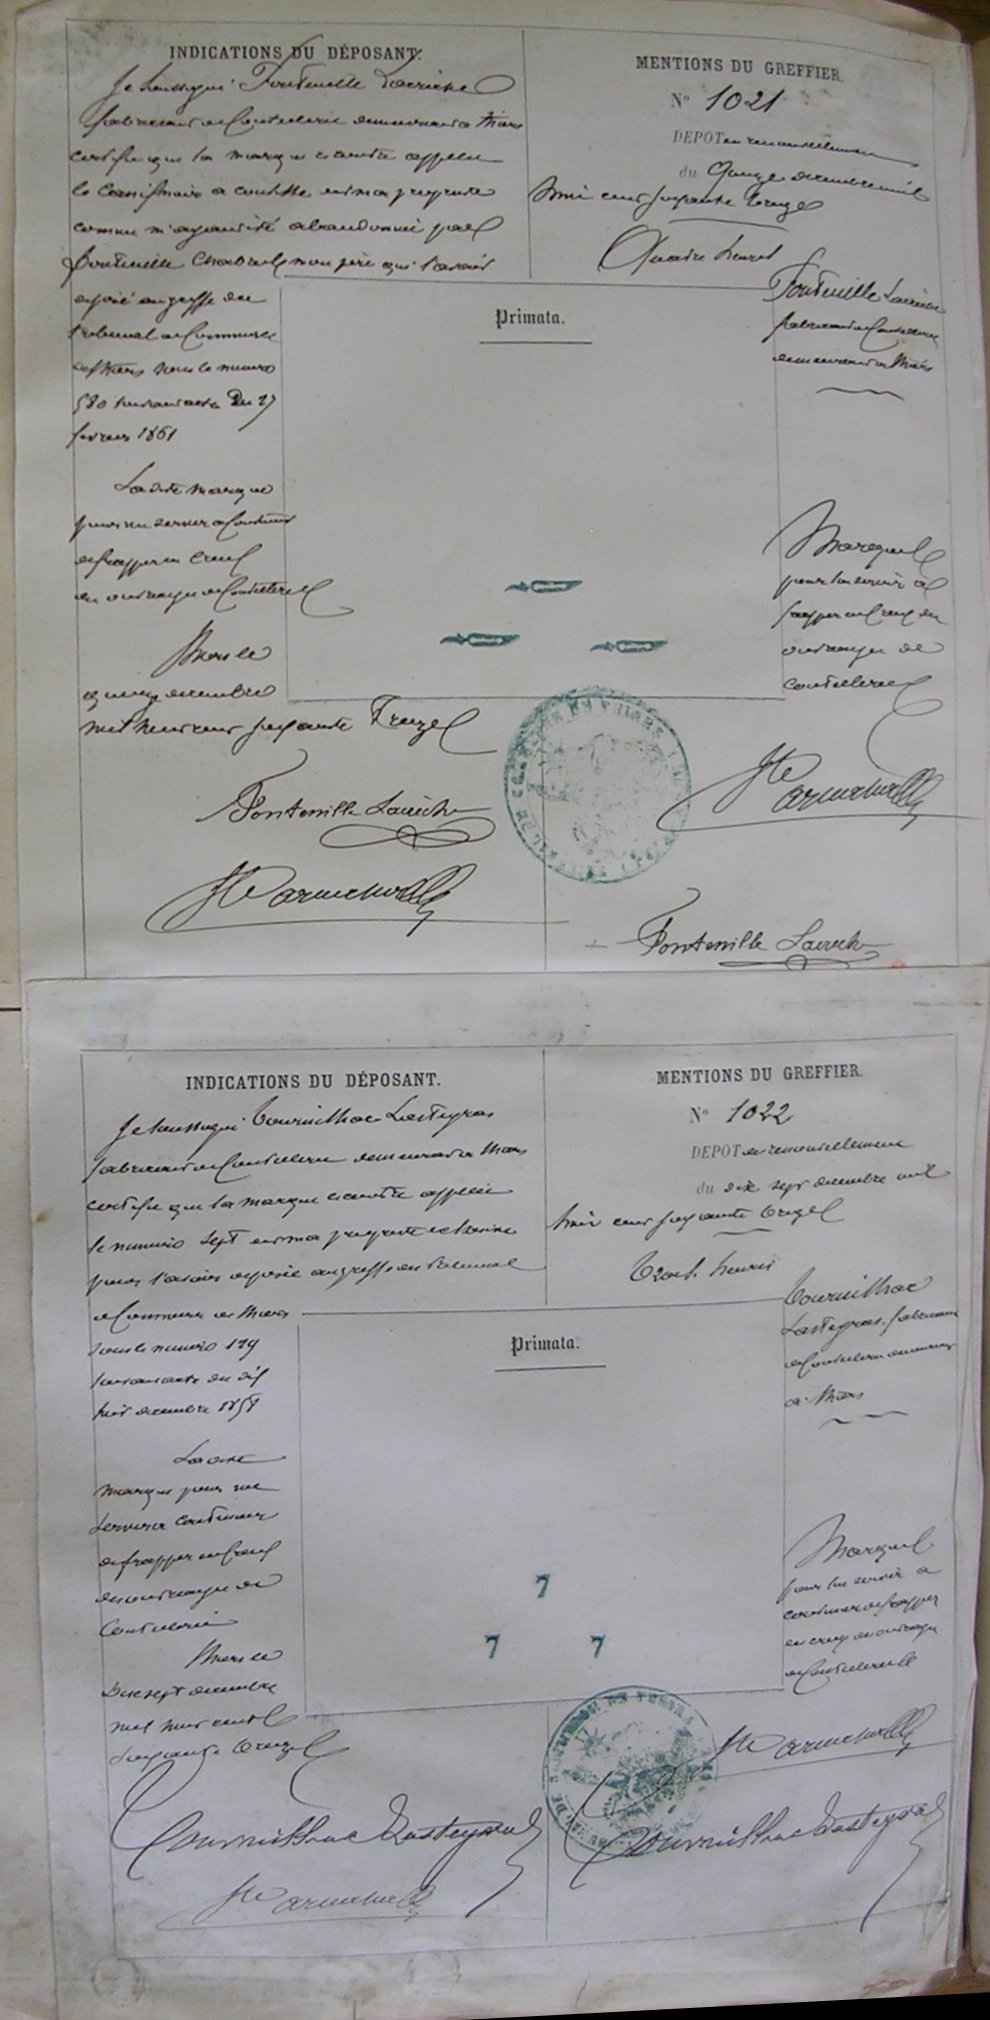 INDICATIONS DU DÉPOSANT.
Je soussigné Fontenille Lariche
fabricant de Coutellerie demeurant a Thiers
certifie que la marque ci contre appelée
le
comme m'ayant été abandonnée par
Fontenille Chabrol mon père qui l'avait
déposé au greffe du
tribunal de Commerce
de Thiers sous le numéro
580 suivant acte du 27
février 1861
La dite marque
pour me servir a Continuer
de frapper en Creux
des ouvrages de Coutellerie
Thiers le
quinze décembre
mil huit cent soixante Treize
Fontenille Lariche
MENTIONS DU GREFFIER.
N° 1021
DEPOT en renouvellement
du Quinze decembre mil
huit cent soixante treize
Quatre heures
Fontenille Lariche
fabricant de Coutellerie
demeurant a Thiers
Primata.
Marque
pour lui servir a
frapper en Creux des
ouvrages de
coutellerie
Fontenille Lariche
INDICATIONS DU DÉPOSANT.
Je soussigné Tournilhac Lasteyras
fabricant de Coutellerie demeurant a Thiers
certifie que la marque ci contre appelée
le numéro Sept est ma propriété
pour l'avoir déposée au greffe du Tribunal
de Commerce de Thiers
sous le numéro 129
suivant acte du dix
huit decembre 1858
La dite
marque pour me
servir a Continuer
de frapper en Creux
des ouvrages de
Coutellerie
Thiers le
Dix sept decembre
mil huit cent
soixante treize
Tournilhac Lasteyras
MENTIONS DU GREFFIER.
N° 1022
DEPOT en renouvellement
du dix sept decembre mil
huit cent soixante treize
Trois heures
Tournilhac
Lasteyras fabricant
de Coutellerie demeurant
a Thiers
Primata.
7
7 7
Marque
pour lui servir a
continuer de frapper
en creux des ouvrages
de Coutellerie
Tournilhac Lasteyras